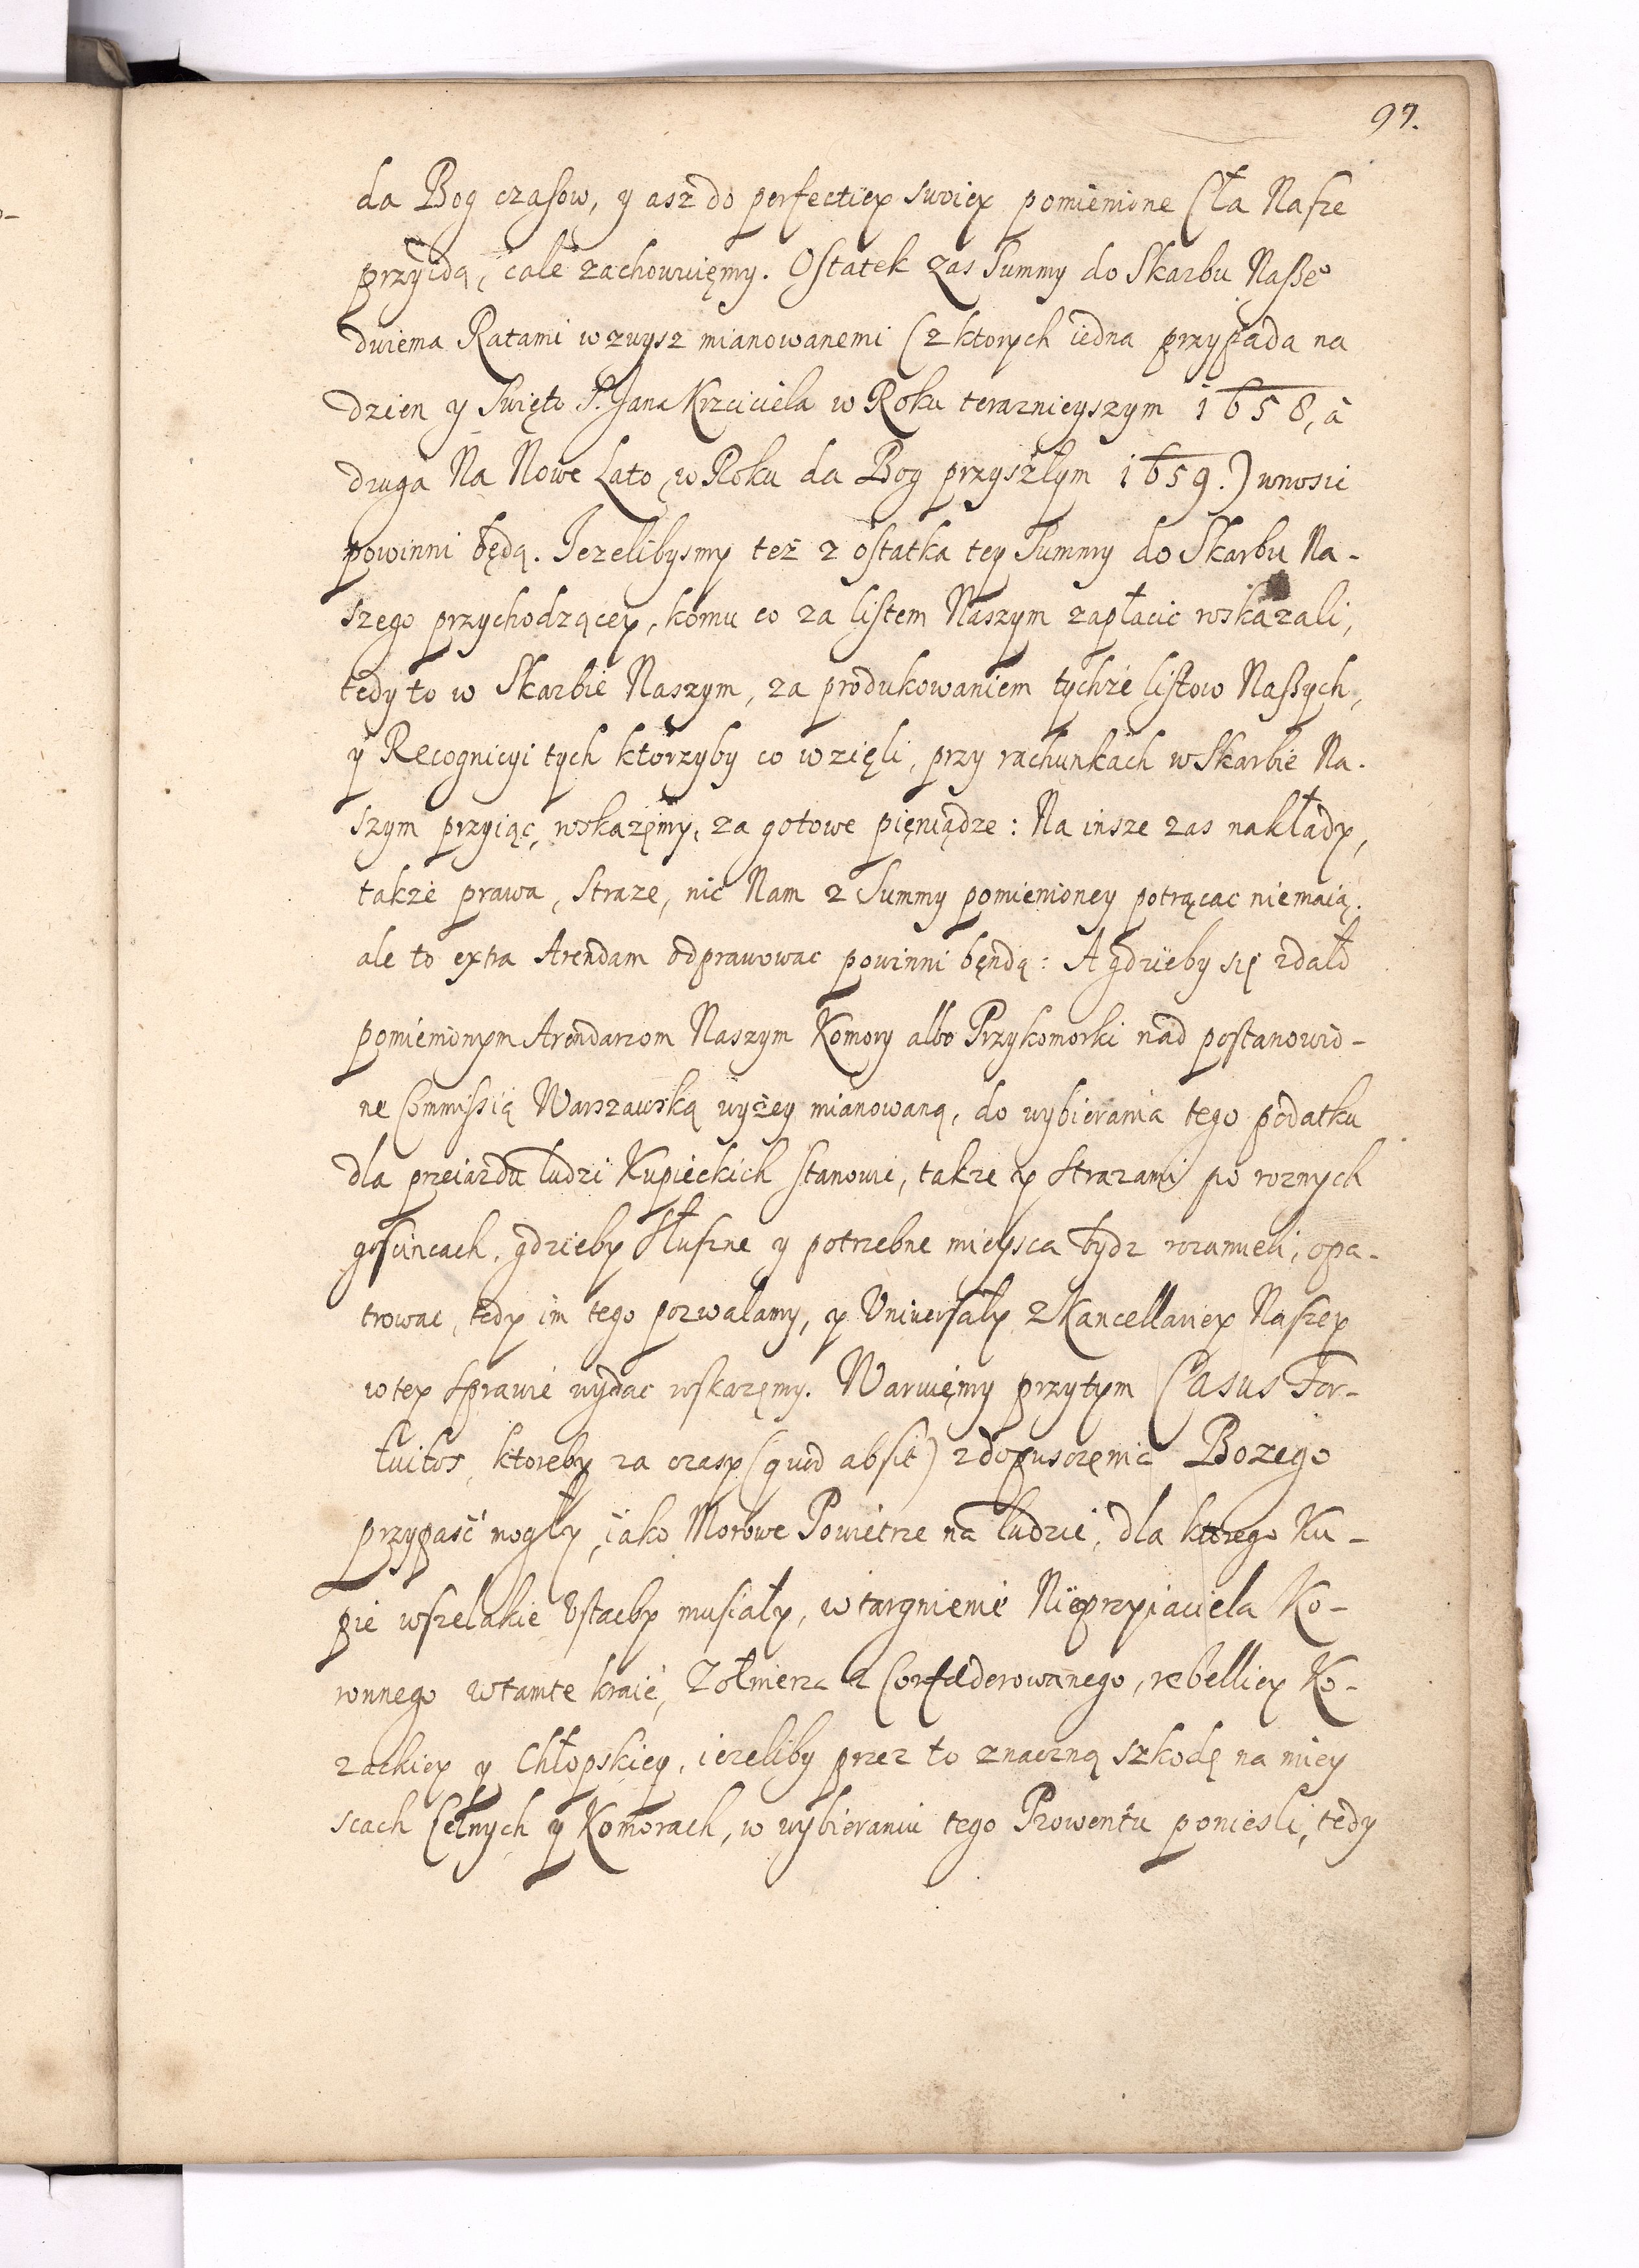 97.
da Bog czasow, y asz do perfectiey swoiey pomienione Cła Nasze
przyidą, cale zachowuięmy. Ostatek zas Summy do Skarbu Nasze°
dwiema Ratami wzwysz mianowanemi (z ktorych iedna przypada na
dzien y Swięto S. Jana Krzciciela w Roku teraznieyszym 1658, à
druga Na Nowe Lato, w Roku da Bog przyszłym 1659.) wnosic
powinni będą. Jezelibysmy tez z ostatka tey Summy do Skarbu Na-
szego przychodzącey, komu co za listem Naszym zapłacic wskazali,
tedy to w Skarbie Naszym, za produkowaniem tychze listow Naszych,
y Recognicyi tych ktorzyby co wzięli, przy rachunkach w Skarbie Na-
szym przyiąc, wskazęmy, za gotowe pięniądze: Na insze zas nakłady,
takze prawa, Straze, nic Nam z Summy pomienioney potrącac niemaią.
ale to extra Arendam odprawowac powinni bęndą: A gdzieby się zdało
pomienionym Arendarzom Naszym Komory albo Przykomorki nad postanowio-
ne Commissią Warszawską wyżey mianowaną, do wybierania tego podatku
dla przeiazdu ludzi Kupieckich stanowic, takze y Strazami po roznych
goscincach, gdzieby słuszne y potrzebne mieysca bydz rozumieli, opa-
trowac, tedy im tego pozwalamy, y Uniuersały z Kancellariey Naszey
w tey sprawie wydac wskazęmy. Waruięmy przytym Casus For-
tuitos, ktoreby za czasy (quod absit) z dopuszczęnia Bozego
przypaść mogły, iako Morowe Powietrze na ludzie, dla ktorego Ku-
pie wszelakie Ustacby musiały, wtargnienie Nieprzyiaciela Ko-
ronnego w tamte kraie, Zołnierza Confæderowanego, rebelliey Ko-
zackiey y Chłopskiey, iezeliby przez to znaczną szkodę na miey
scach Celnych y Komorach, w wybieraniu tego Prowentu poniesli, tedy